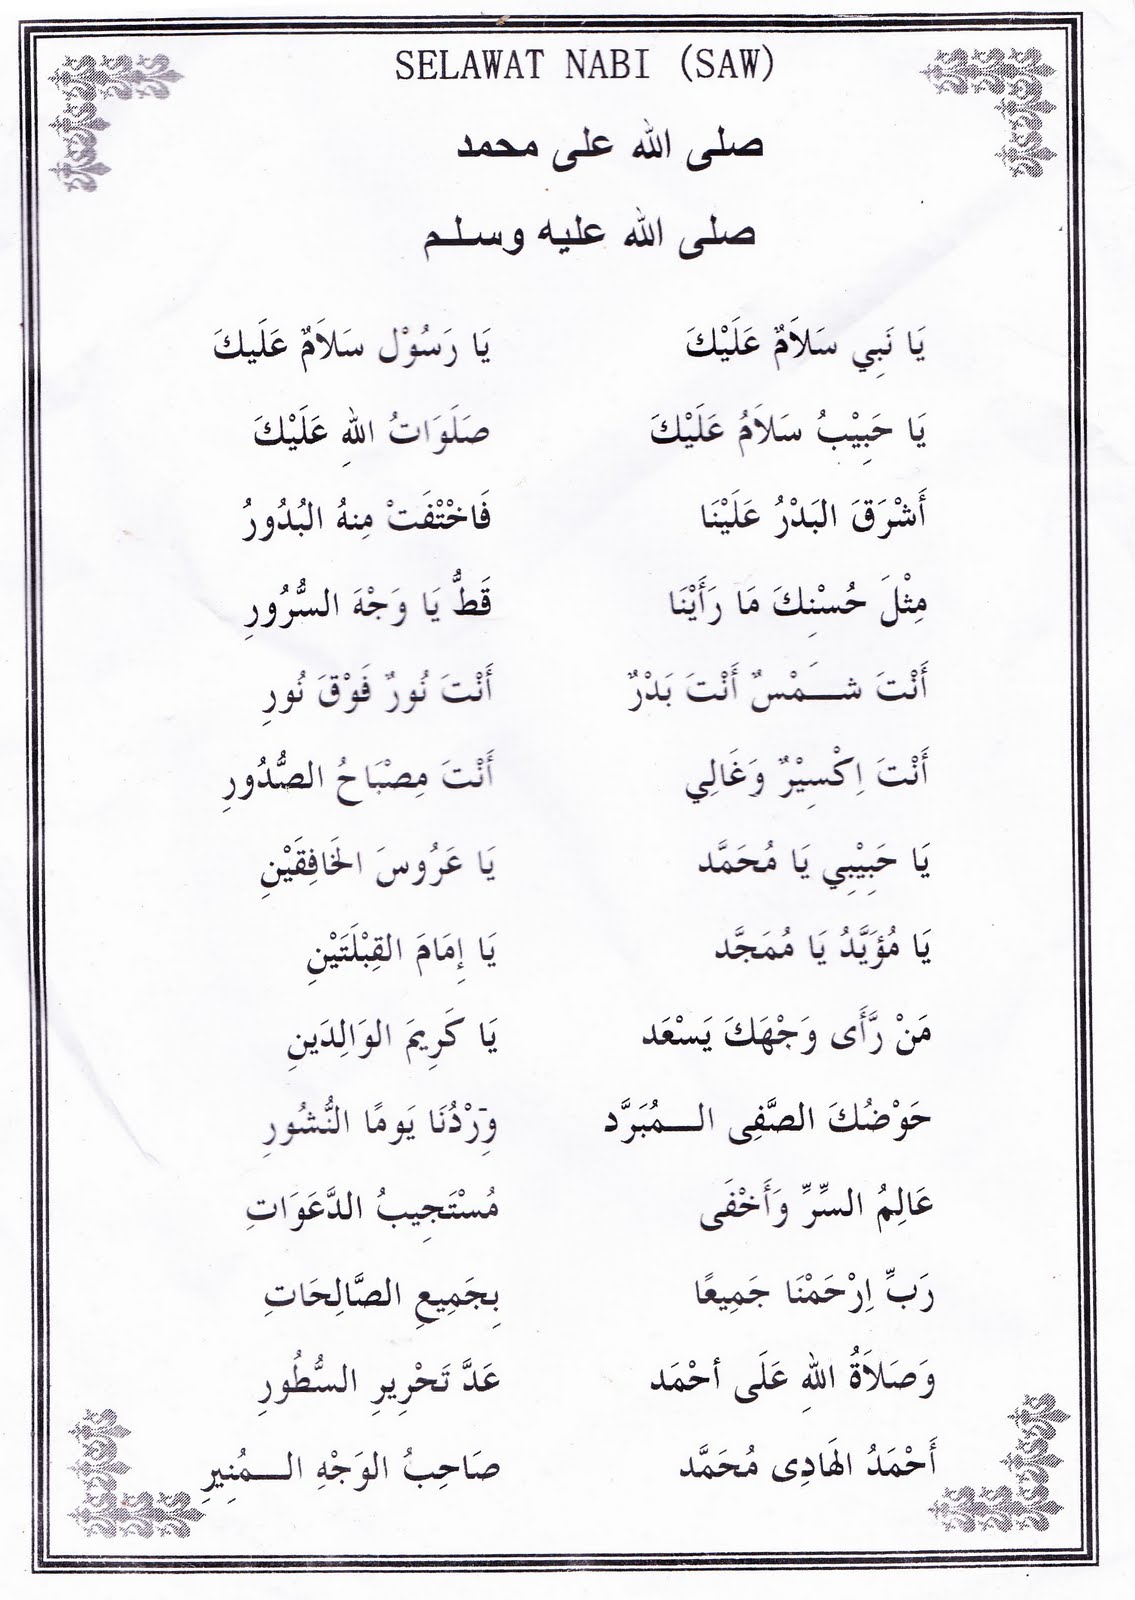 SELAWAT NABI (SAW)
صلى الله على محمد
صلى الله عليه وسلم
يَا نَبِي سَلاَمٌ عَلَيْكَ يَا رَسُوْل سَلاَمٌ عَلَيكَ
يَا حَبِيْبُ سَلاَمُ عَلَيْكَ صَلَوَاتُ اللهِ عَلَيْكَ
أَشْرَقَ البَدْرُ عَلَيْنَا فَاخْتْفَتْ مِنهُ البُدُورُ
مِثْلَ حُسْنِكَ مَا رَأَيْنَا قَطُّ يَا وَجْهَ السُّرُورِ
أَنْتَ شَـــمْسٌ أَنْتَ بَدْرٌ أَنْتَ نُورٌ فَوْقَ نُورِ
أَنْتَ اِكْسِيْرٌ وَغَالِي أَنْتَ مِصْبَاحُ الصُّدُورِ
يَا حَبِيْبِي يَا مُحَمَّد يَا عَرُوسَ الخَافِقَيْنِ
يَا مُؤَيَّدُ يَا مُمَجَّد يَا إِمَامَ القِبْلَتَيْنِ
مَنْ رَّأَى وَجْهَكَ يَسْعَد يَا كَرِيمَ الوَالِدَينِ
حَوْضُكَ الصَّفِى الـــمُبَرَّد وِرْدُنَا يَومًا النُّشُورِ
عَالِمُ السِّرِّ وَأَخْفَى مُسْتَجِيبُ الدَّعَوَاتِ
رَبِّ اِرْحَمْنَا جَمِيعًا بِجَمِيعِ الصَّالِحَاتِ
وَصَلاَةُ اللهِ عَلَى أحْمَد عَدَّ تَحْرِيرِ السُّطُورِ
أَحْمَدُ الهَادِى مُحَمَّد صَاحِبُ الوَجْهِ الـــمُنِيرِ